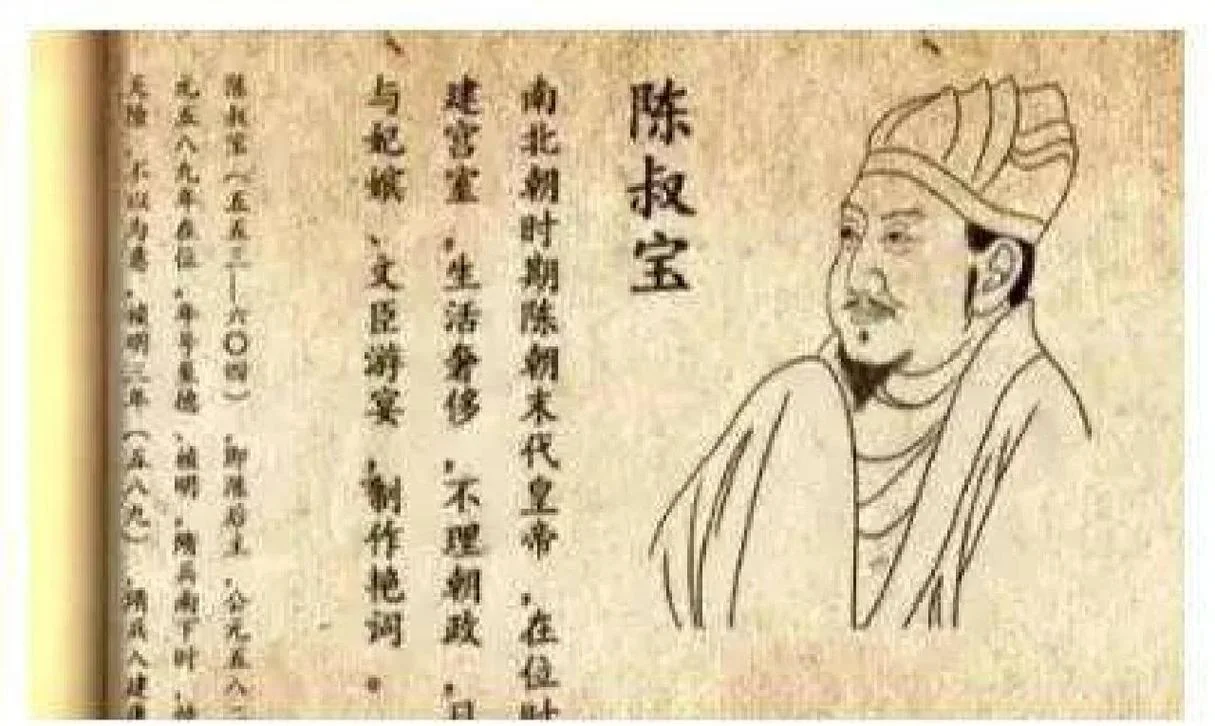 陈叔宝
南北朝时期陈朝末代皇帝，在位时
建宫室，生活奢侈，不理朝政，日
与妃嫔、文臣游宴，制作艳词。
陈叔宝（五五三—六〇四），即陈后主，公元五八二
元五八九年在位，年号至德、祯明，隋兵南下时，恃
天险，不以为意，祯明三年（五八九），隋兵入建康